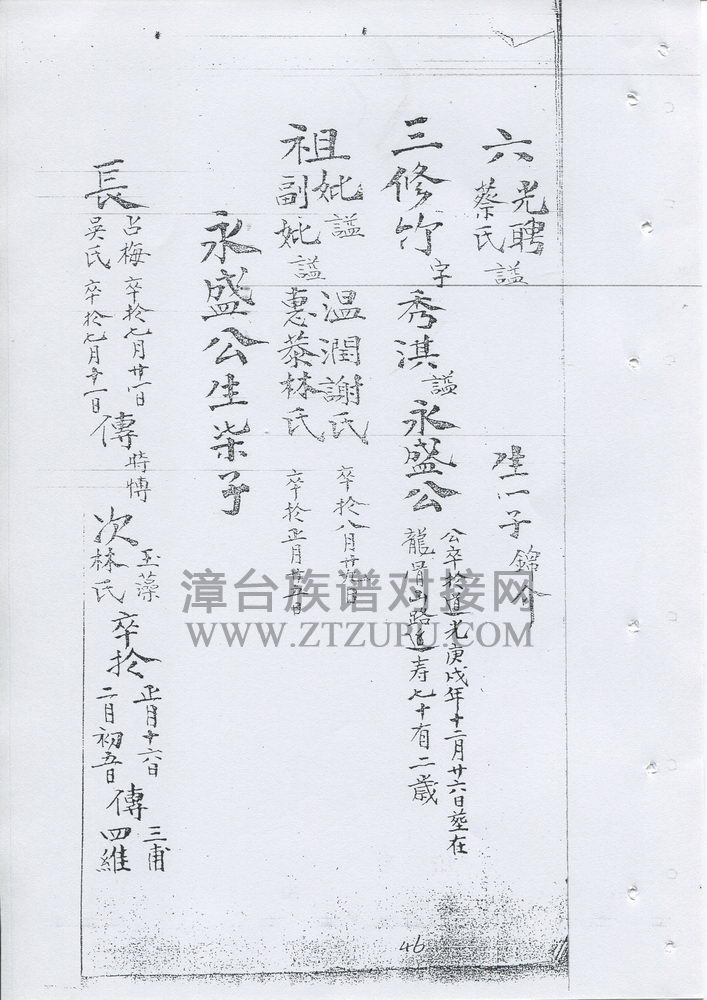 六 光聘 蔡氏 謚 生一子 錦
三修竹字秀淇謚永盛公 公卒於道光庚戌年十二月廿六日塟在
龍 山路 寿七十有二歲
祖妣謚温潤謝氏 卒於八月廿 日
副妣謚惠恭林氏 卒於正月廿五日
永盛公生柒子
長 占梅 卒於七月廿 日 吳氏 卒於七月十一日 傳 時愽
次 玉藻 林氏 卒於 正月十六日 二月初五日 傳 三甫 四維
漳台族谱对接网
WWW.ZTZUPU.COM
46